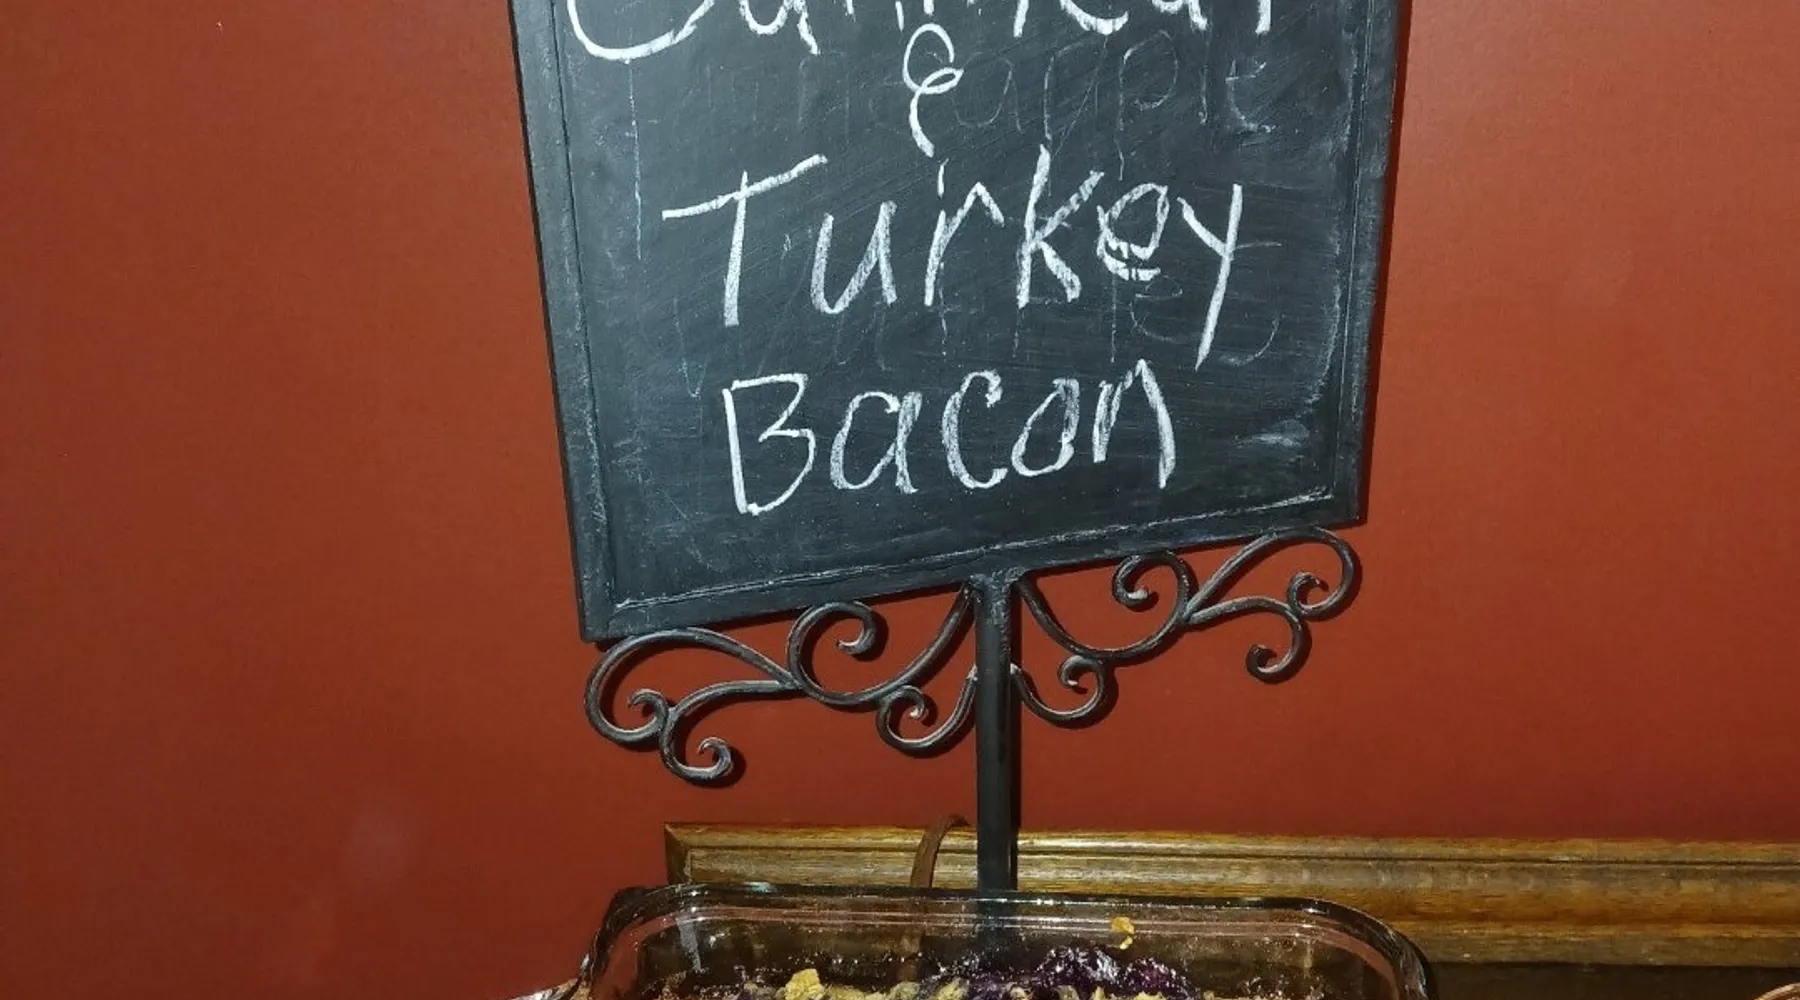 &
Turkey
Bacon